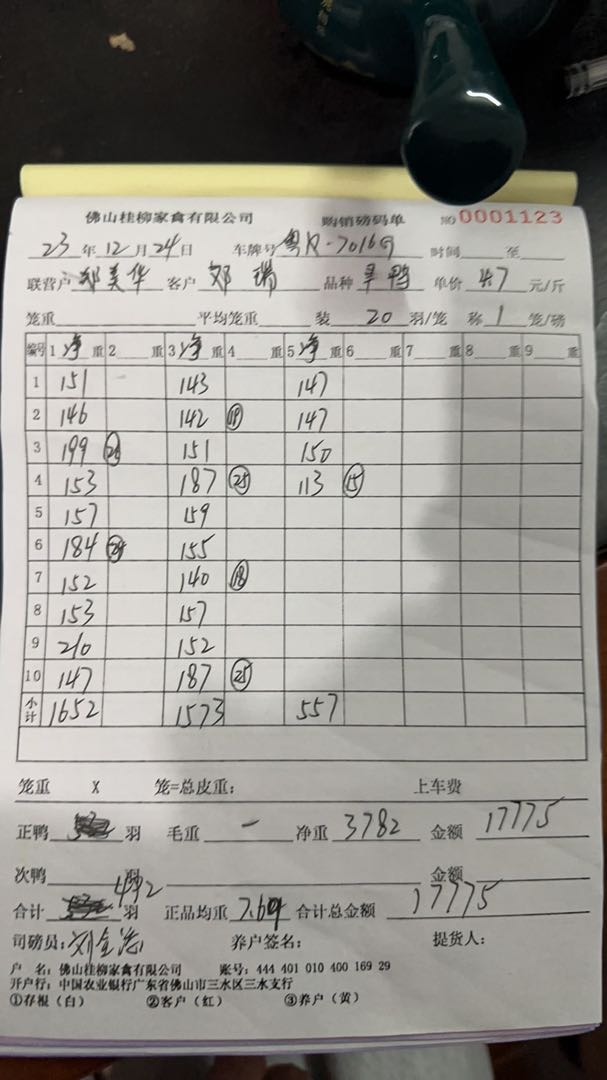 佛山桂柳家禽有限公司 购销磅码单 NO 0001123
23 年 12 月 24 日 车牌号 粤R-7016G 时间 至
联营户 邓美华 客户 邓瑞 品种 单价 4.7 元/斤
笼重 平均笼重 装 20 羽/笼 称 1 笼/磅
编号 1 净 重 2 重 3 净 重 4 重 5 净 重 6 重 7 重 8 重 9 重
1 151 143 147
2 146 142 19 147
3 199 151 150
4 153 187 25 113 15
5 157 159
6 184 24 155
7 152 140 18
8 153 157
9 210 152
10 147 187 25
小计 1652 1573 557
笼重 X 笼=总皮重: 上车费
正鸭 羽 毛重 — 净重 3782 金额 17775
次鸭 羽 金额
合计 492 羽 正品均重 7.69 合计总金额 17775
司磅员: 养户签名: 提货人:
户 名: 佛山桂柳家禽有限公司 账号: 444 401 010 400 169 29
开户行: 中国农业银行广东省佛山市三水区三水支行
①存根（白） ②客户（红） ③养户（黄）